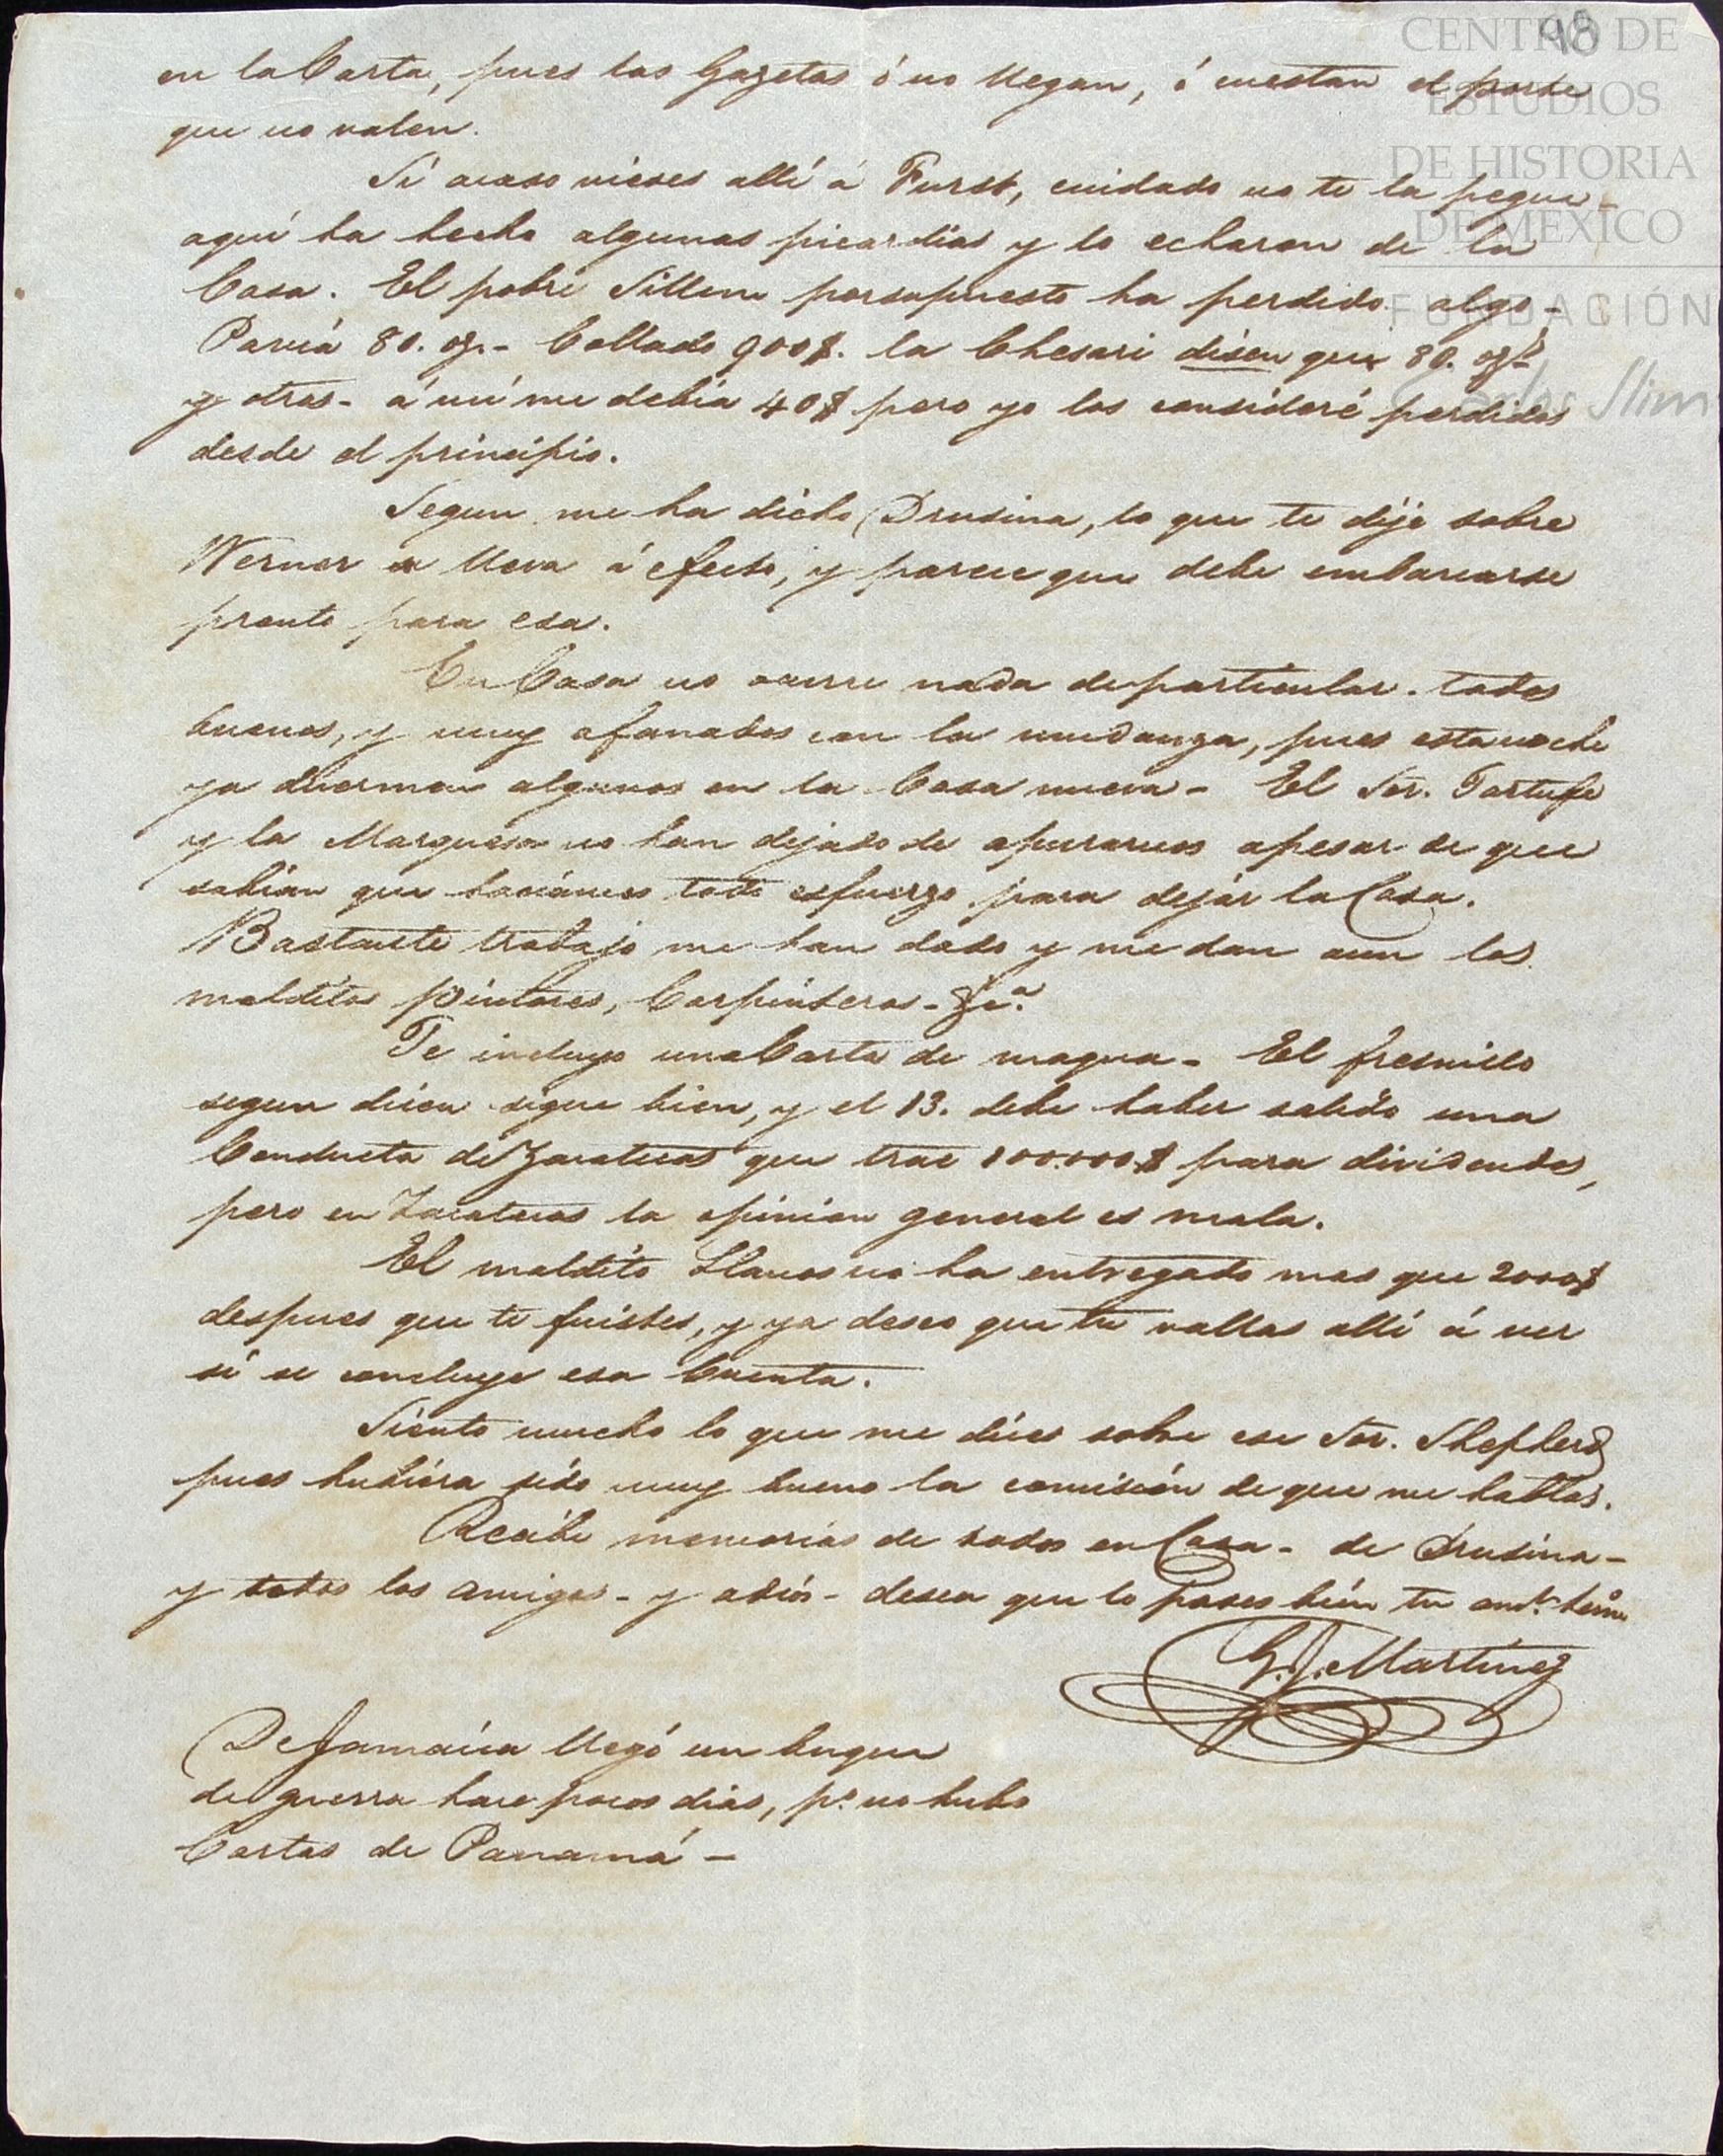 98
CENTRO DE
ESTUDIOS
DE HISTORIA
DE MÉXICO
FUNDACIÓN
Carlos Slim
en la Carta, pues las Gazetas ó no llegan, ó cuestan el porte
que no valen.
Si acaso vieses allí á Furst, cuidado no te la pegue -
aquí ha hecho algunas picardias y lo echaron de la
Casa. El pobre Sillem porsupuesto ha perdido algo -
Pavia 80. oz. - Collado 900$. la Chesari disen que 80. oz.
y otros - á mí me debia 40$ pero yo los consideré perdidos
desde el principio.
Segun me ha dicho Drusina, lo que te dije sobre
Werner se lleva á efecto, y parece que debe embarcarse
pronto para esa.
En Casa no ocurre nada de particular. todos
buenos, y muy afanados con la mudanza, pues esta noche
ya duermen algunos en la Casa nueva - El Sor. Tartufe
y la Marquesa no han dejado de apurarnos apesar de que
sabian que haciamos todo esfuerzo para dejár la Casa.
Bastante trabajo me han dado y me dan aun los
malditos pintores, Carpinteros - &a.
Te incluyo una Carta de magua - El fresnillo
segun dicen sigue bien, y el 13. debe haber salido una
Conducta de Zacatecas que trae 100.000$ para dividendos,
pero en Zacatecas la opinion general es mala.
El maldito Llanos no ha entregado mas que 2000$
despues que te fuistes, y ya deseo que tu vallas allí á ver
si se concluye esa Cuenta.
Siento mucho lo que me dices sobre ese Sor. Shepherd
pues hubiera sido muy bueno la comisión de que me hablas.
Recibe memorias de todos en Casa - de Drusina -
y todos los amigos - y adiós - desea que lo pases bién tu
G. J. Martinez
De Jamaica llegó un buque
de guerra hace pocos dias, po. no hubo
Cartas de Panamá -